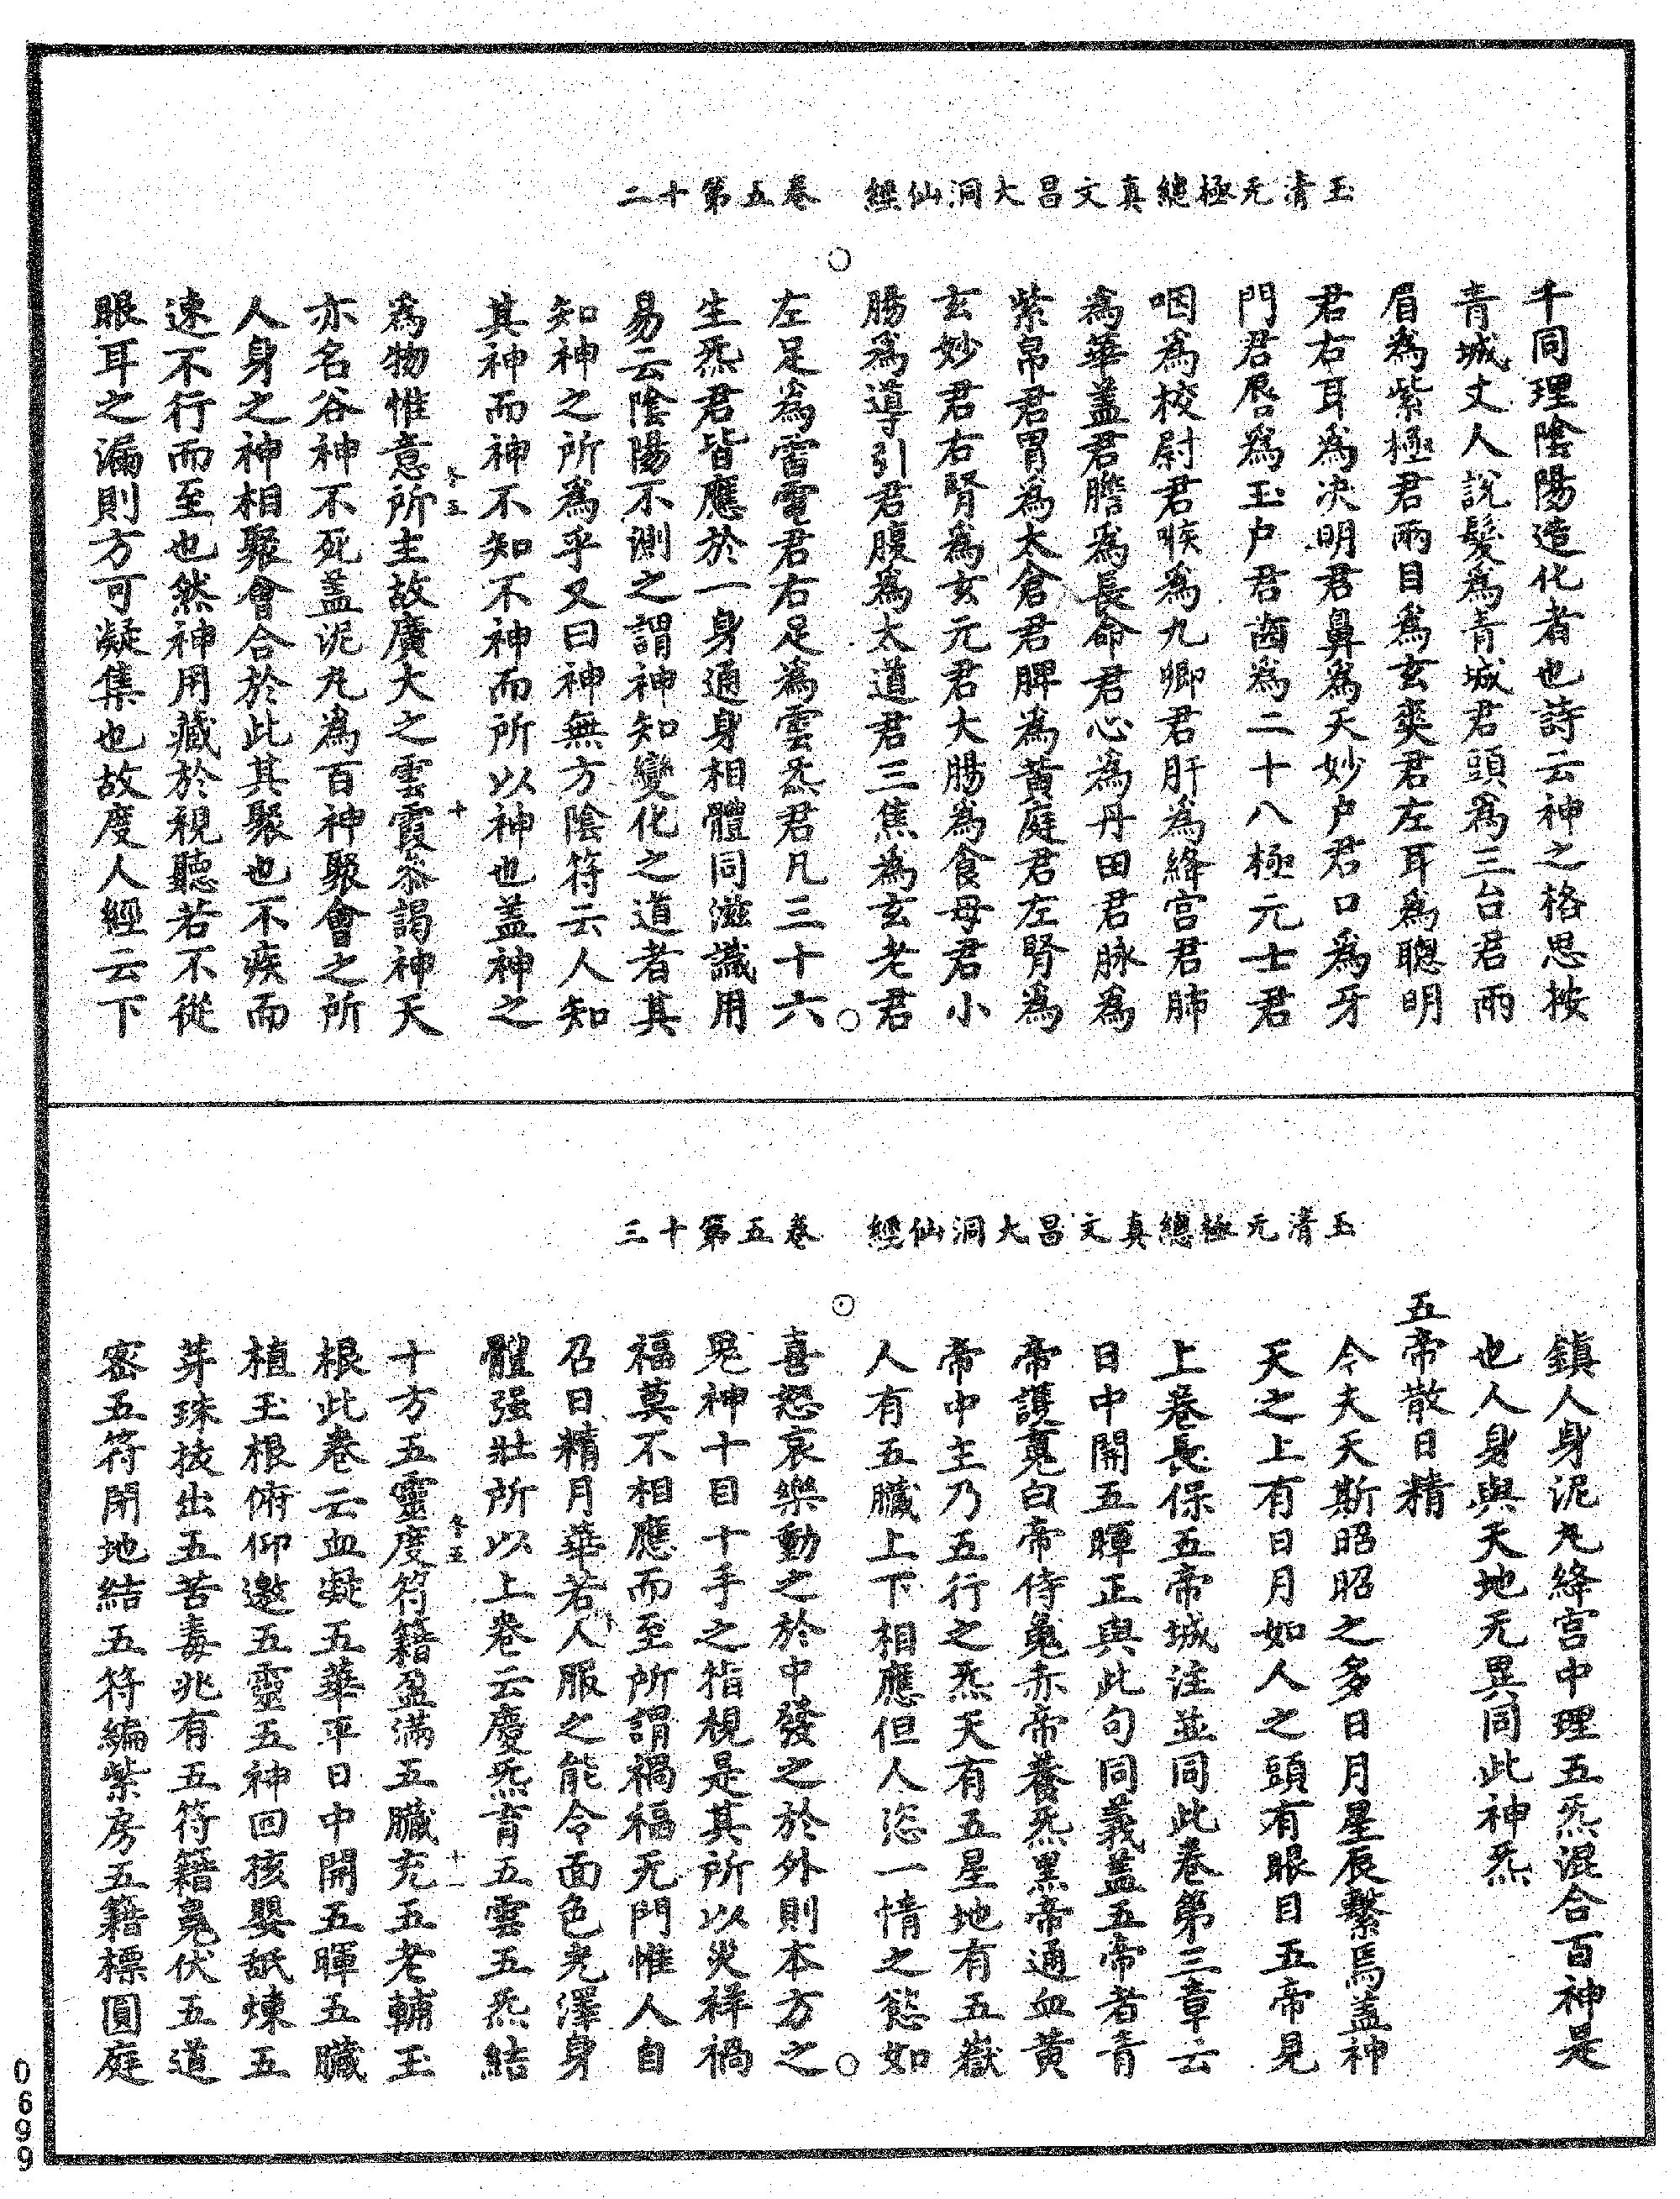 玉清无極總真文昌大洞仙經　卷五第十二
千同理陰陽造化者也詩云神之格思按
青城丈人說髮為青城君頭為三台君兩
眉為紫極君兩目為玄爽君左耳為聰明
君右耳為決明君鼻為天妙户君口為牙
門君唇為玉户君齒為二十八極元士君
咽為校尉君喉為九卿君肝為絳宫君肺
為華蓋君膽為長命君心為丹田君脉為
紫帛君胃為太倉君脾為黃庭君左腎為
玄妙君右腎為玄元君大腸為食母君小
腸為導引君腹為太道君三焦為玄老君
左足為雷電君右足為雲炁君凡三十六
生炁君皆應於一身通身相體同滋識用
易云陰陽不測之謂神知變化之道者其
知神之所為乎又曰神無方陰符云人知
其神而神不知不神而所以神也蓋神之
為物惟意所主故廣大之雲霞叅謁神天
亦名谷神不死蓋泥丸為百神聚會之所
人身之神相聚會合於此其聚也不疾而
速不行而至也然神用藏於視聽若不從
眼耳之漏則方可凝集也故度人經云下
冬五　十
玉清无極總真文昌大洞仙經　卷五第十三
鎮人身泥丸絳宫中理五炁混合百神是
也人身與天地无異同此神炁
五帝散日精
今夫天斯昭昭之多日月星辰繫焉蓋神
天之上有日月如人之頭有眼目五帝見
上卷長保五帝城注並同此卷第三章云
日中開五暉正與此句同義蓋五帝者青
帝護䰟白帝侍䰟赤帝養炁黑帝通血黃
帝中主乃五行之炁天有五星地有五嶽
人有五臟上下相應但人恣一情之慾如
喜怒哀樂動之於中發之於外則本方之
䰟神十目十手之指視是其所以災祥禍
福莫不相應而至所謂禍福无門惟人自
召日精月華若人服之能令面色光澤身
體强壯所以上卷云慶炁育五雲五炁結
十方五靈度符籍盈滿五臟充五老輔玉
根此卷云血凝五華平日中開五暉五臟
植玉根俯仰邀五靈五神回孩嬰䑛煉五
芽珠拔出五苦毒兆有五符籍䰟伏五道
密五符閉地結五符編紫房五籍標圓庭
冬五　十一
0699